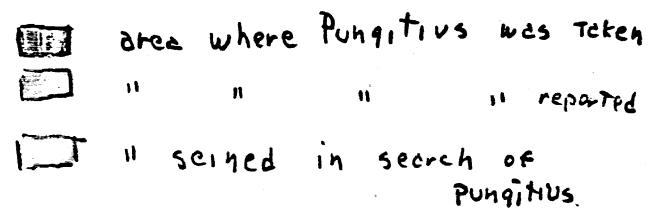 area where Pungitius was taken
" " " " reported
" seined in search of
Pungitius.